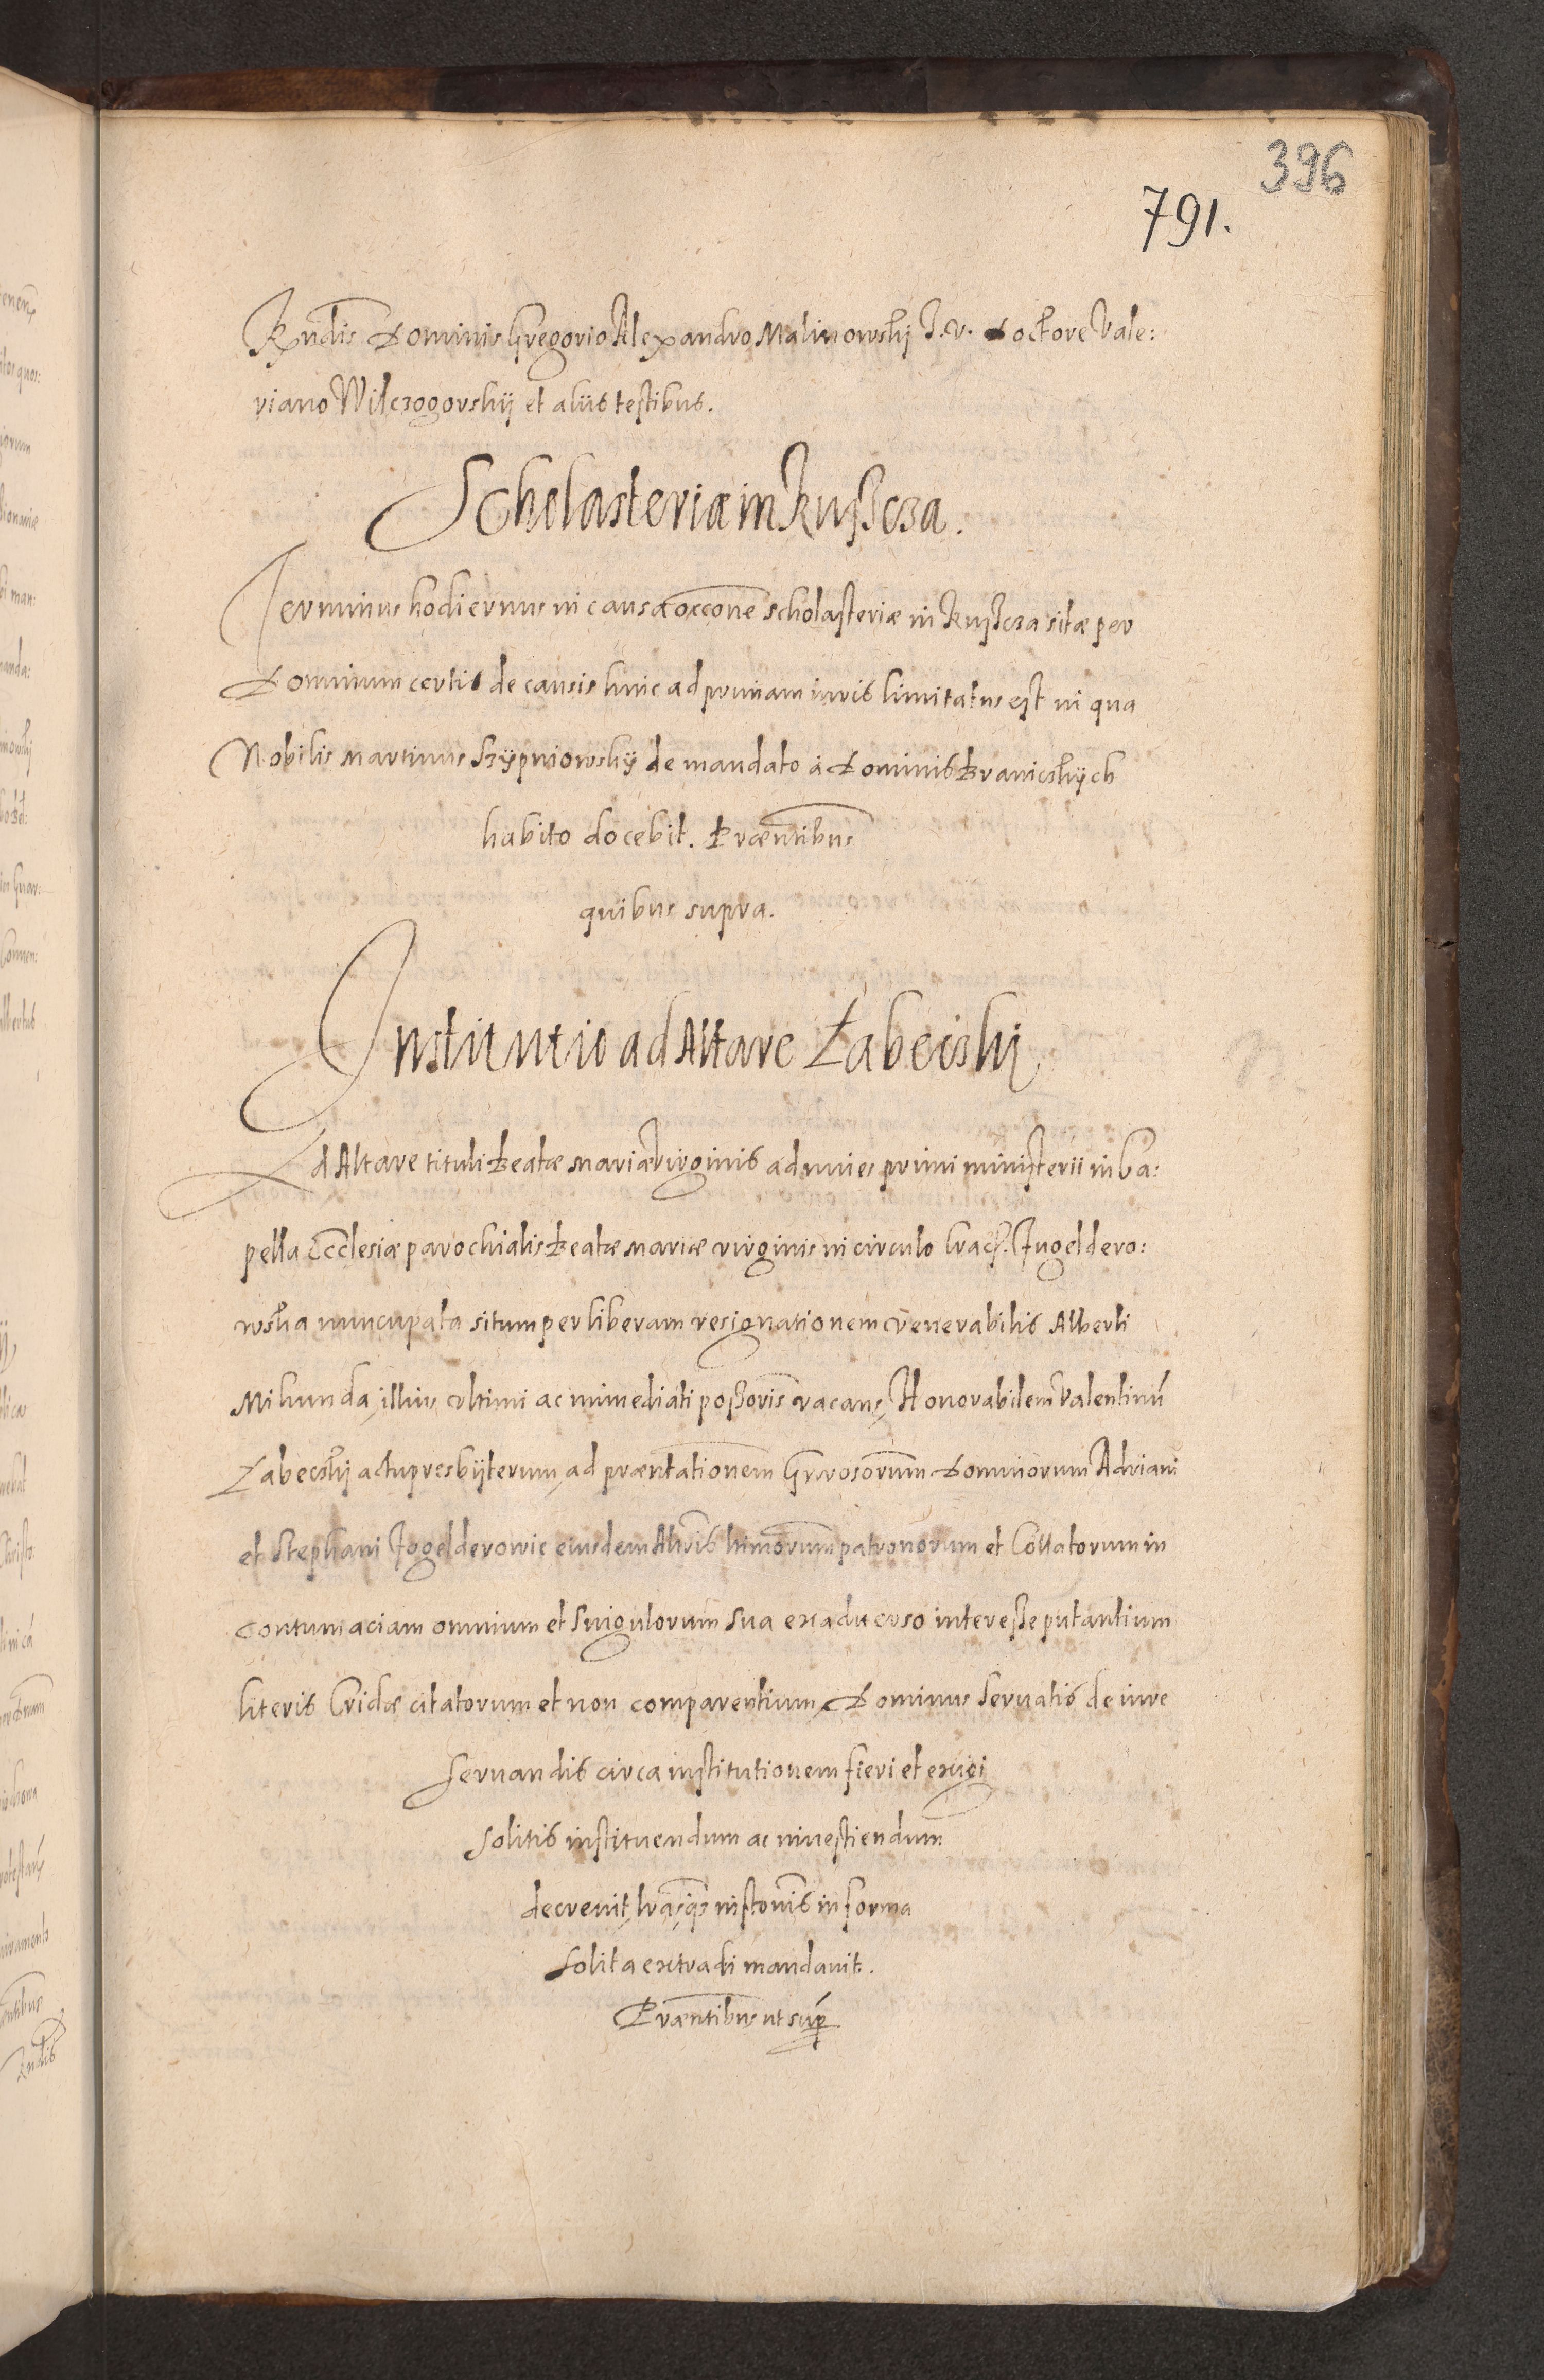 396
791.
Rndis Dominis Gregorio Alexandro Malinowskÿ I. V. Doctore Vale:
riano Wilczogorskÿ et alÿs testibus.
Scholasteriæ in Ruszcza.
Terminus hodiernus in causa occone scholasteriæ in Ruszcza sitæ per
Dominum certis de causis hinc ad primam iuris limitatus est in qua
Nobilis Martinus Szÿpniowskÿ de mandato à Dominis Branicskÿch
habito docebit. Præntibus
quibus supra.
Institutio ad Altare Łabecski
Ad Altare tituli Beatæ Mariæ Virginis ad nives primi ministerii in Ca:
pella Ecclesiæ parochialis Beatæ Mariæ virginis in circulo Crac. Jugeldero:
wska nuncupata situm per liberam resignationem Venerabilis Alberti
Mikunda, illius ultimi ac immediati possoris vacans, Honorabilem Valentinū
Łabecskÿ actu presbÿterum, ad præntationem Gnrosorum Dominorum Adriani
et Stephani Jogelderowic eiusdem Altris ltimorum patronorum et Collatorum in
contumaciam omnium et singulorum sua ex aduerso interesse putantium
literis Cridæ citatorum et non comparentium, Dominus seruatis de iure
seruandis circa institutionem fieri et exigi
solitis instituendum ac inuestiendum
decreuit, lrasqs instonis in forma
solita extradi mandauit.
Præntibus ut sup